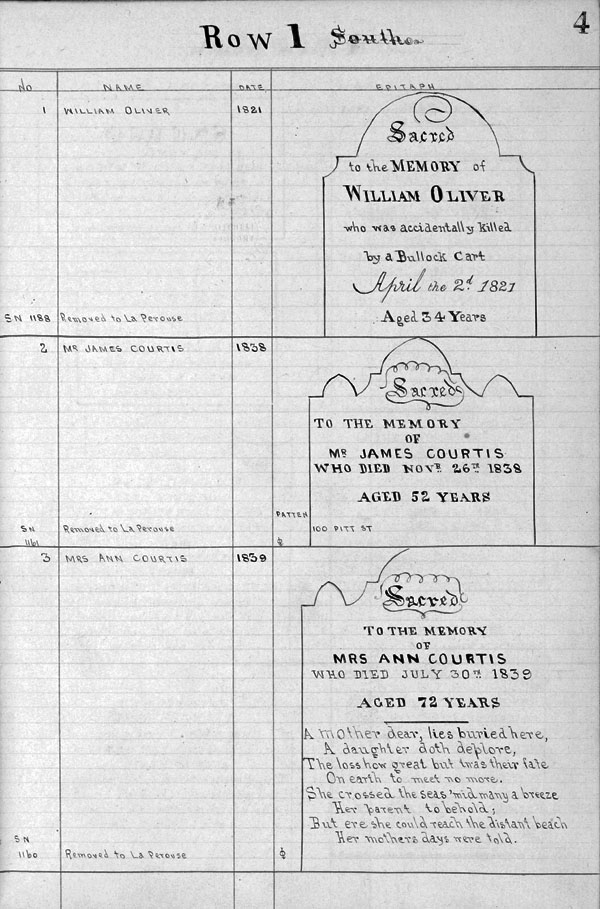 4
Row 1 South.
No NAME DATE EPITAPH
1 WILLIAM OLIVER 1821
Sacred
to the MEMORY of
WILLIAM OLIVER
who was accidentally killed
by a Bullock Cart
April the 2d 1821
Aged 34 Years
SN 1188 Removed to La Perouse
2 MR JAMES COURTIS 1838
Sacred
TO THE MEMORY
OF
MR JAMES COURTIS
WHO DIED NOVR 26TH 1838
AGED 52 YEARS
PATTEN
100 PITT ST
SN Removed to La Perouse
1161
3 MRS ANN COURTIS 1839
Sacred
TO THE MEMORY
OF
MRS ANN COURTIS
WHO DIED JULY 30TH 1839
AGED 72 YEARS
A mother dear, lies buried here,
A daughter doth deplore,
The loss how great but twas their fate
On earth to meet no more.
She crossed the seas 'mid many a breeze
Her parent to behold;
But ere she could reach the distant beach
Her mothers days were told.
SN
1160 Removed to La Perouse